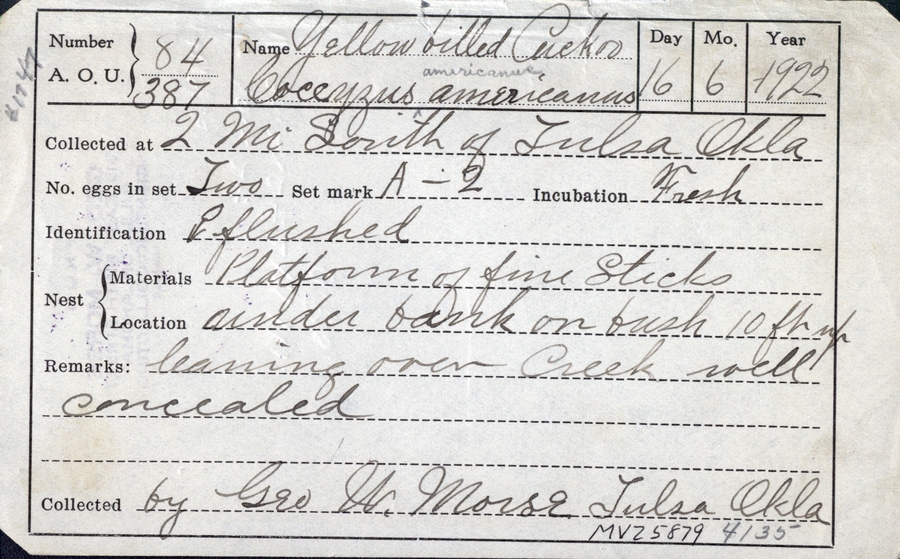 Number 84 Name Yellow billed Cuckoo Day Mo. Year
A. O. U. 387 Coccyzus americanus americanus 16 6 1922
Collected at 2 Mi South of Tulsa Okla
No. eggs in set Two Set mark A - 2 Incubation Fresh
Identification flushed
Nest Materials Platform of fine Sticks
Location under bank on bush 10 ft up
Remarks: leaning over Creek well
concealed
Collected by Geo W. Morse Tulsa Okla
MVZ5879 4135